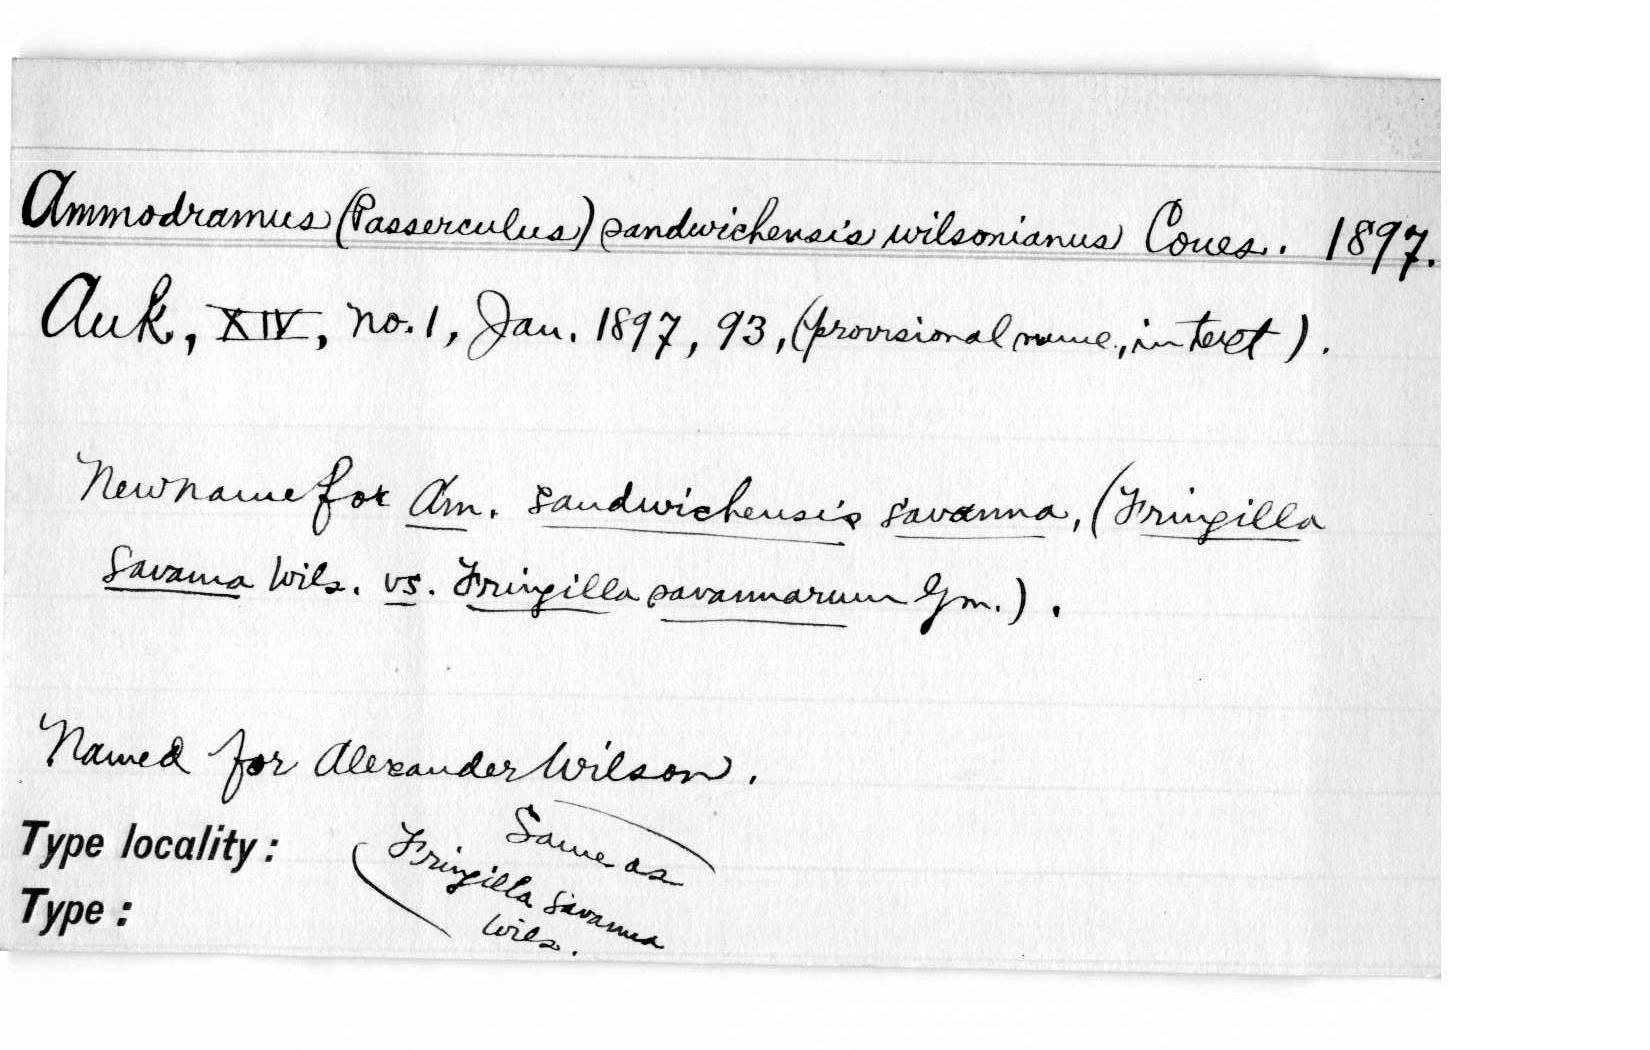 Ammodramus (Passerculus) sandwichensis wilsonianus Coues. 1897.
Auk, XIV, no. 1, Jan. 1897, 93, (provisional name, in text).
New name for Am. sandwichensis savanna, (Fringilla
savanna Wils. vs. Fringilla savannarum Gm.).
Named for Alexander Wilson.
Type locality:
Type:
Same as
Fringilla savanna
Wils.